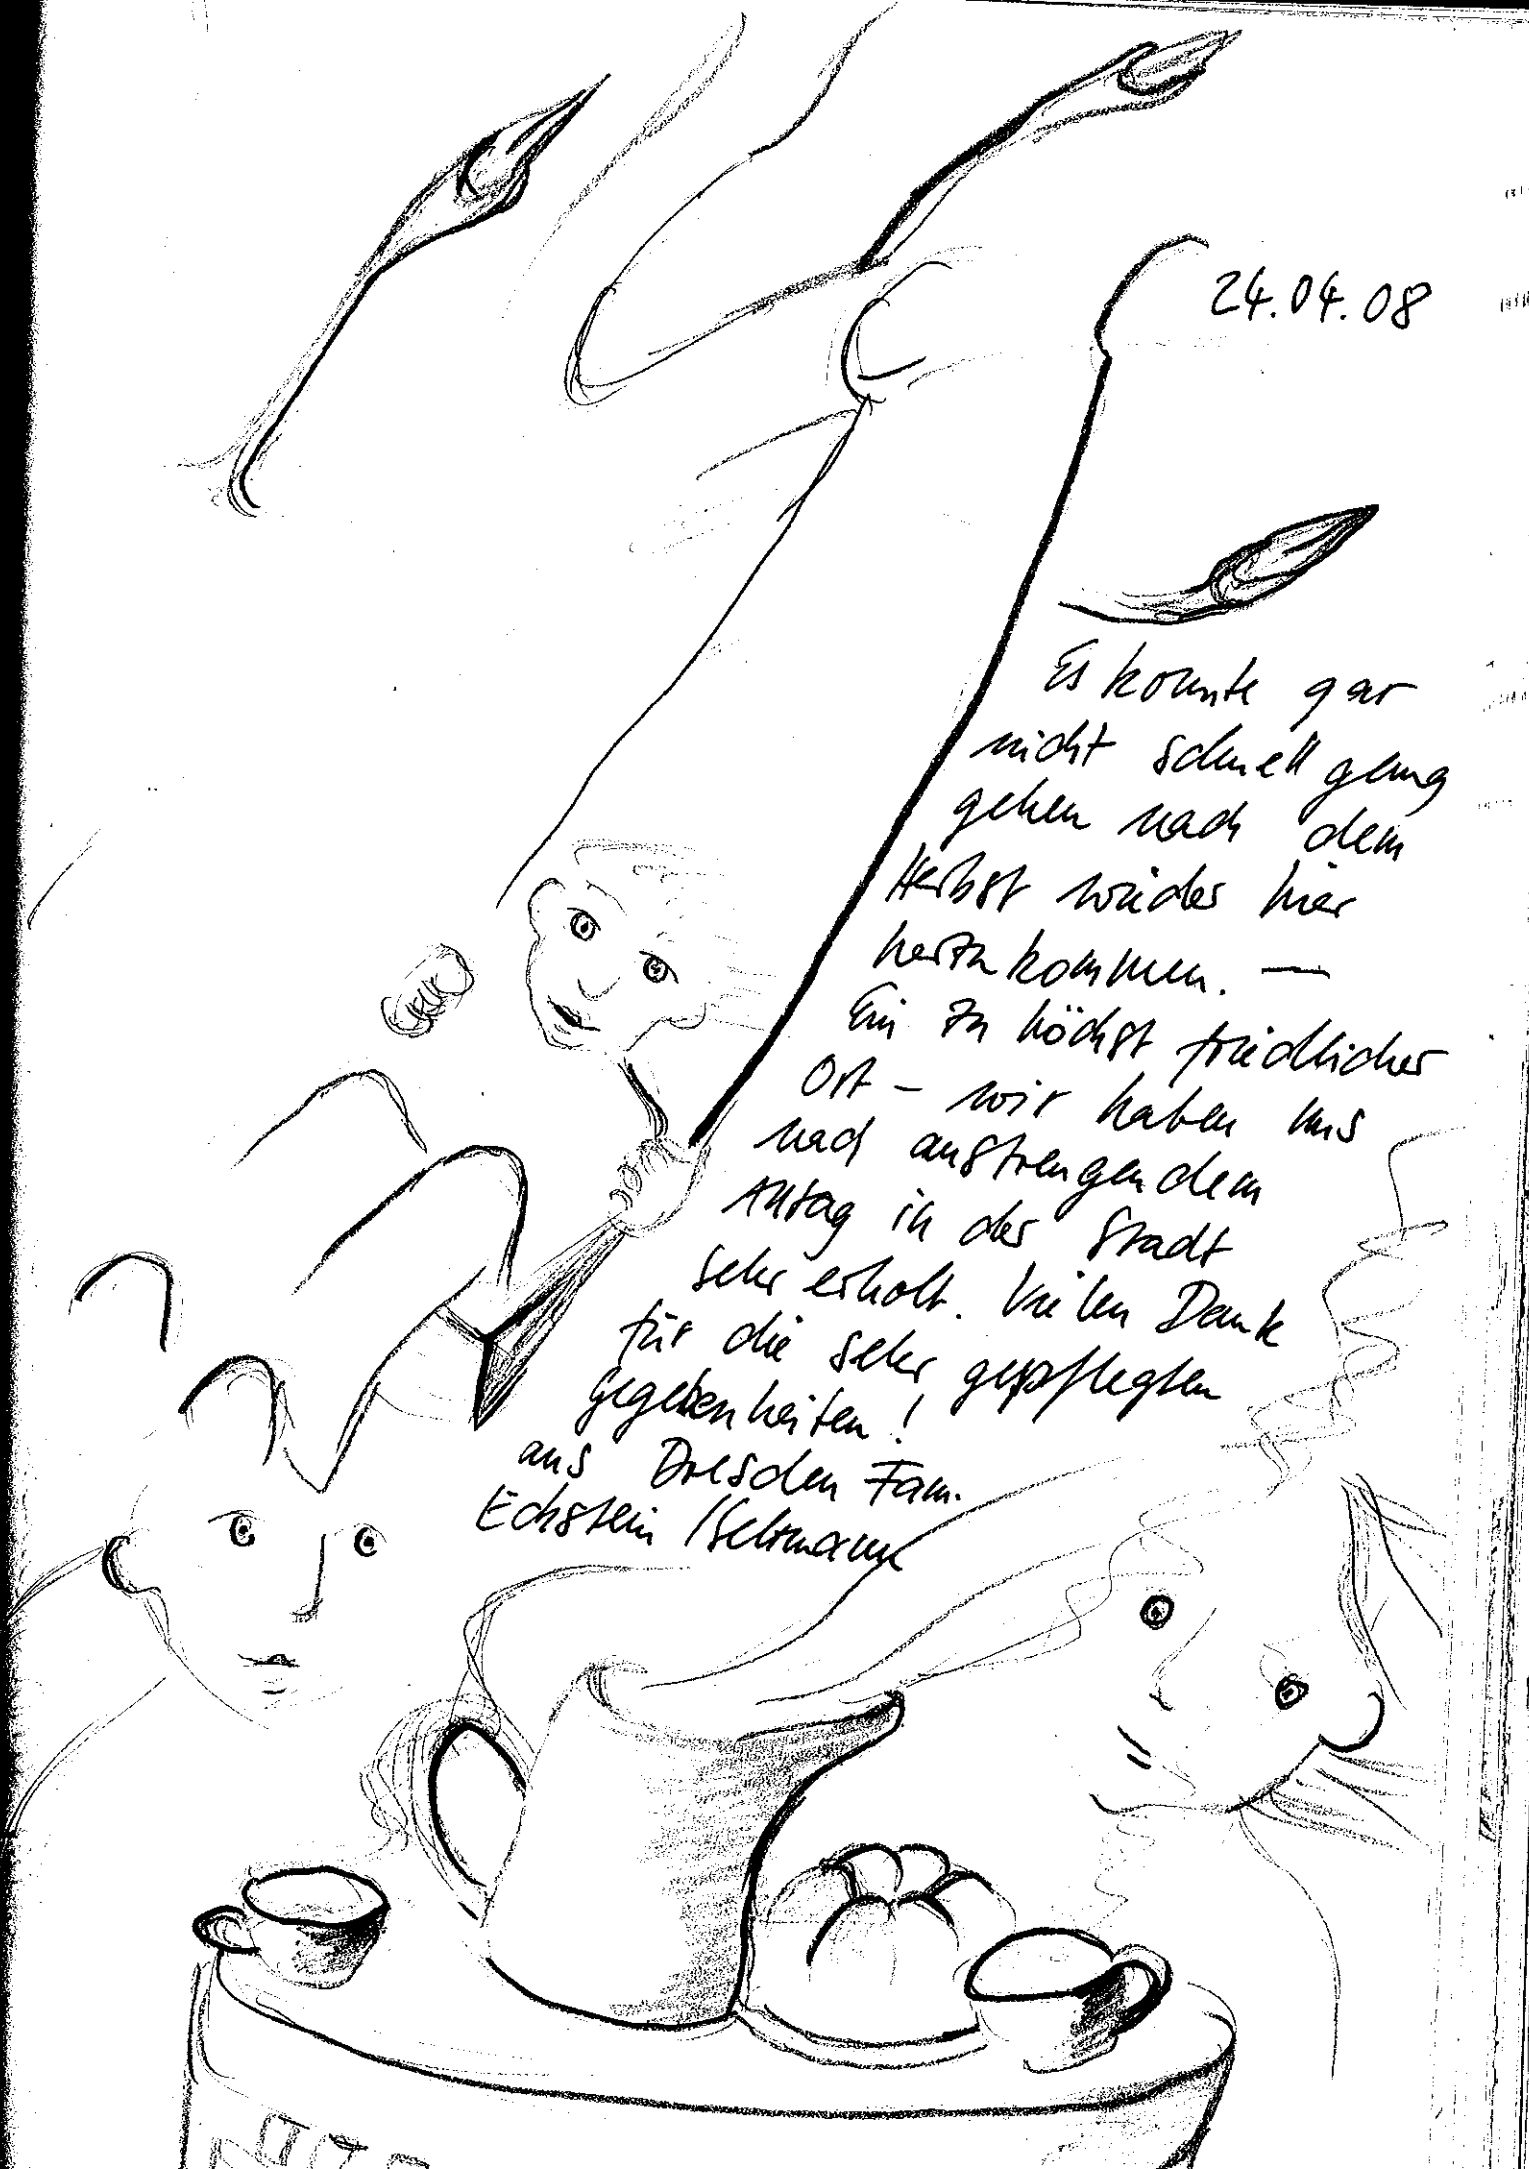 24.04.08
Es konnte gar
nicht schnell genug
gehen nach dem
Herbst wieder hier
herzukommen. —
Ein zu höchst friedlicher
Ort – wir haben uns
nach anstrengendem
Alltag in der Stadt
sehr erholt. Vielen Dank
für die sehr gepflegten
Gegebenheiten!
aus Dresden Fam.
Eckstein /